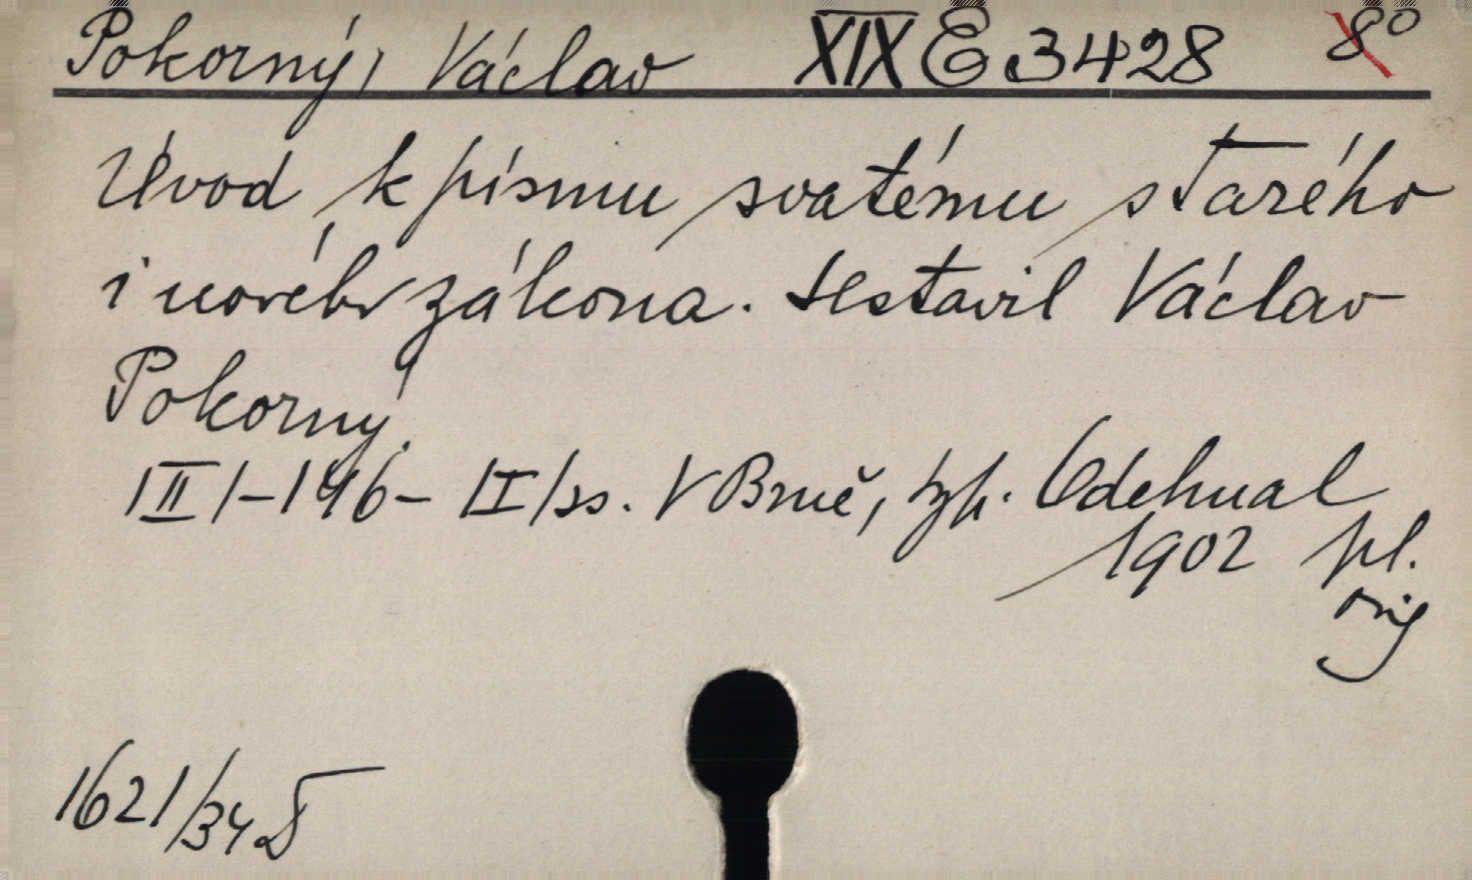 Pokorný, Václav XIX E 3428 8°
Úvod k písmu svatému starého
i nového zákona. Sestavil Václav
Pokorný.
/II/-146- /I/ ss. V Brně, typ. Odehnal
1902 pl.
orig
1621/34 D